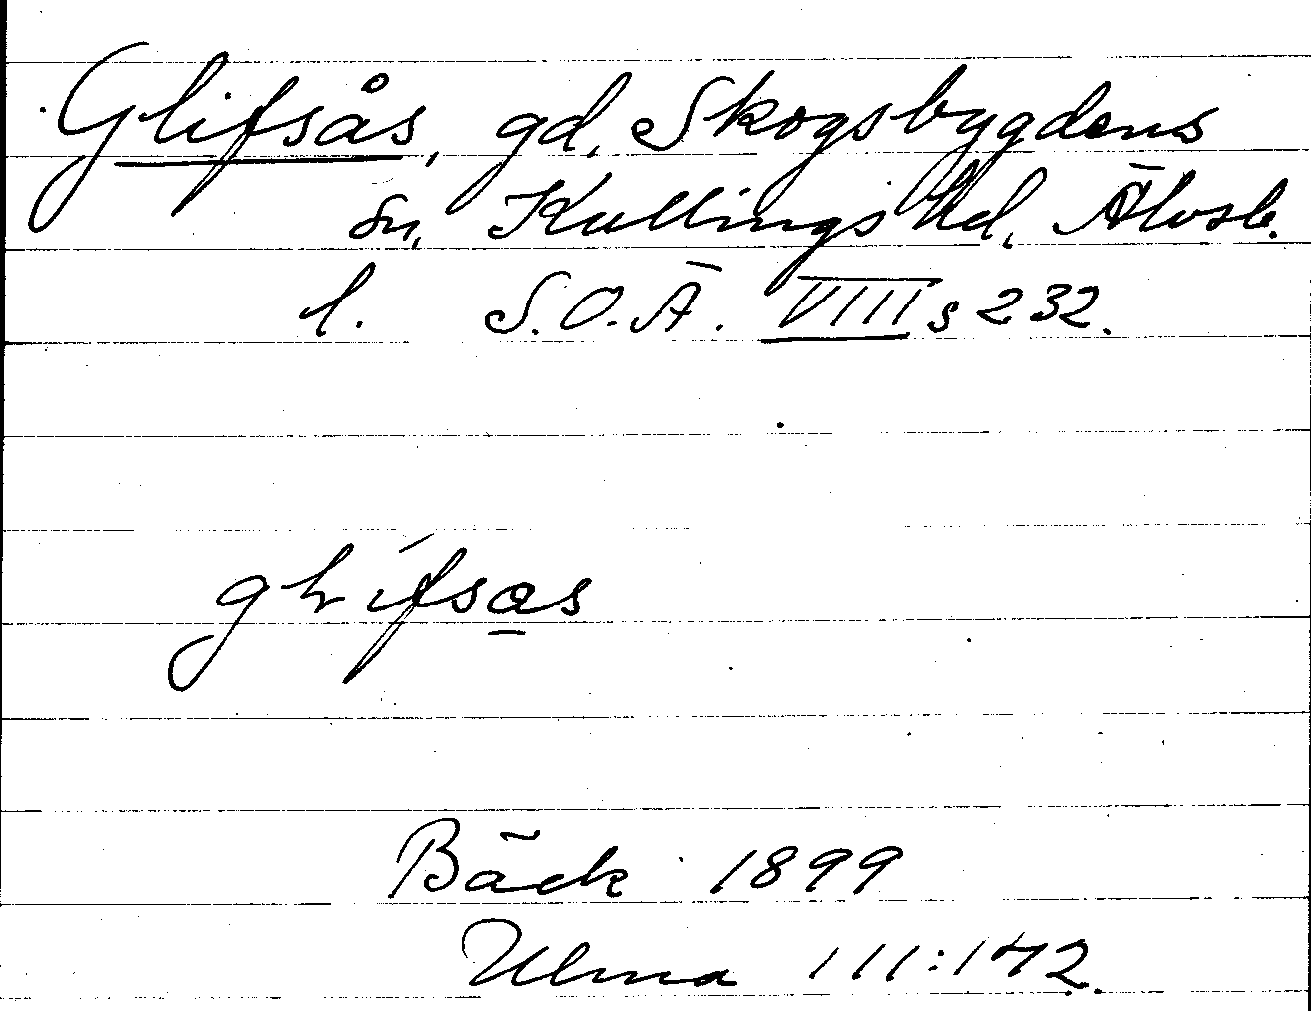 Glifsås, gd, Skogsbygdens
sn, Kullings hd, Älvsb.
l. S.O.Ä. VIII s 232.
glifsas
Bäck 1899
Ulma 111:142.